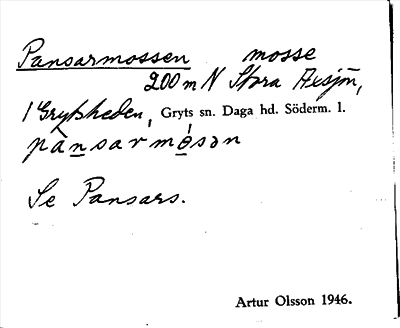 Pansarmossen mosse
200 m N Stora Axsjön,
Grytsheden, Gryts sn. Daga hd. Söderm. l.
pànsarmósən
Se Pansars.
Artur Olsson 1946.